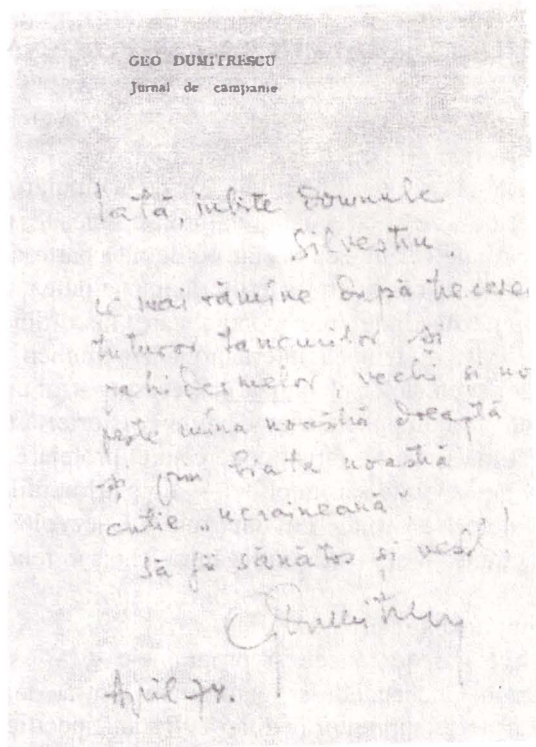 GEO DUMITRESCU
Jurnal de campanie
Iată, iubite domnule
Silvestru
ce mai rămîne după trecerea
tuturor tancurilor și
șahideșmelor, vechi și no
peste mîna noastră dreaptă
și prin biata noastră
cutie
Să fii sănătos și vesel!
April 74.